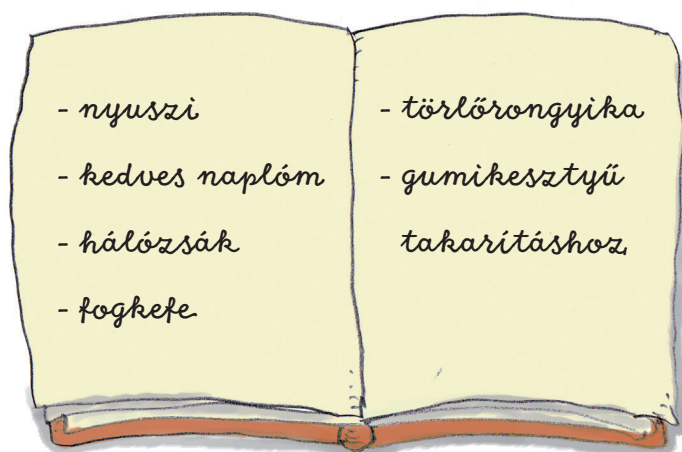 - nyuszi
- kedves naplóm
- hálózsák
- fogkefe
- törlőrongyika
- gumikesztyű
takarításhoz